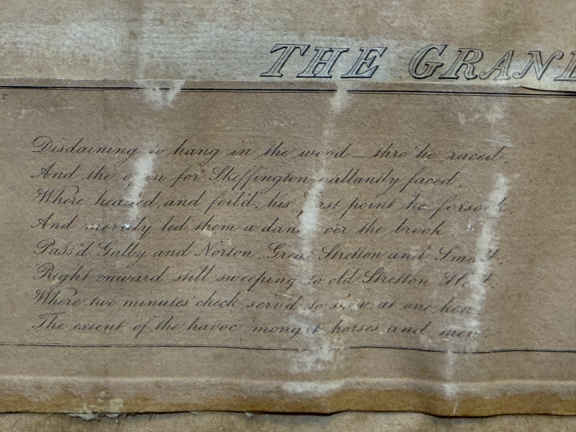 THE GRAN
Disdaining to hang in the wood — thro' he raced,
And the open for Skeffington gallantly faced,
Where headed, and foil'd, his first point he forsook,
And merrily led them a dance o'er the brook
Pass'd Galby and Norton, Great Stretton and Small,
Right onward still sweeping to old Stretton Hall,
Where two minutes check serv'd to shew at one
The extent of the havoc 'mongst horses and men.